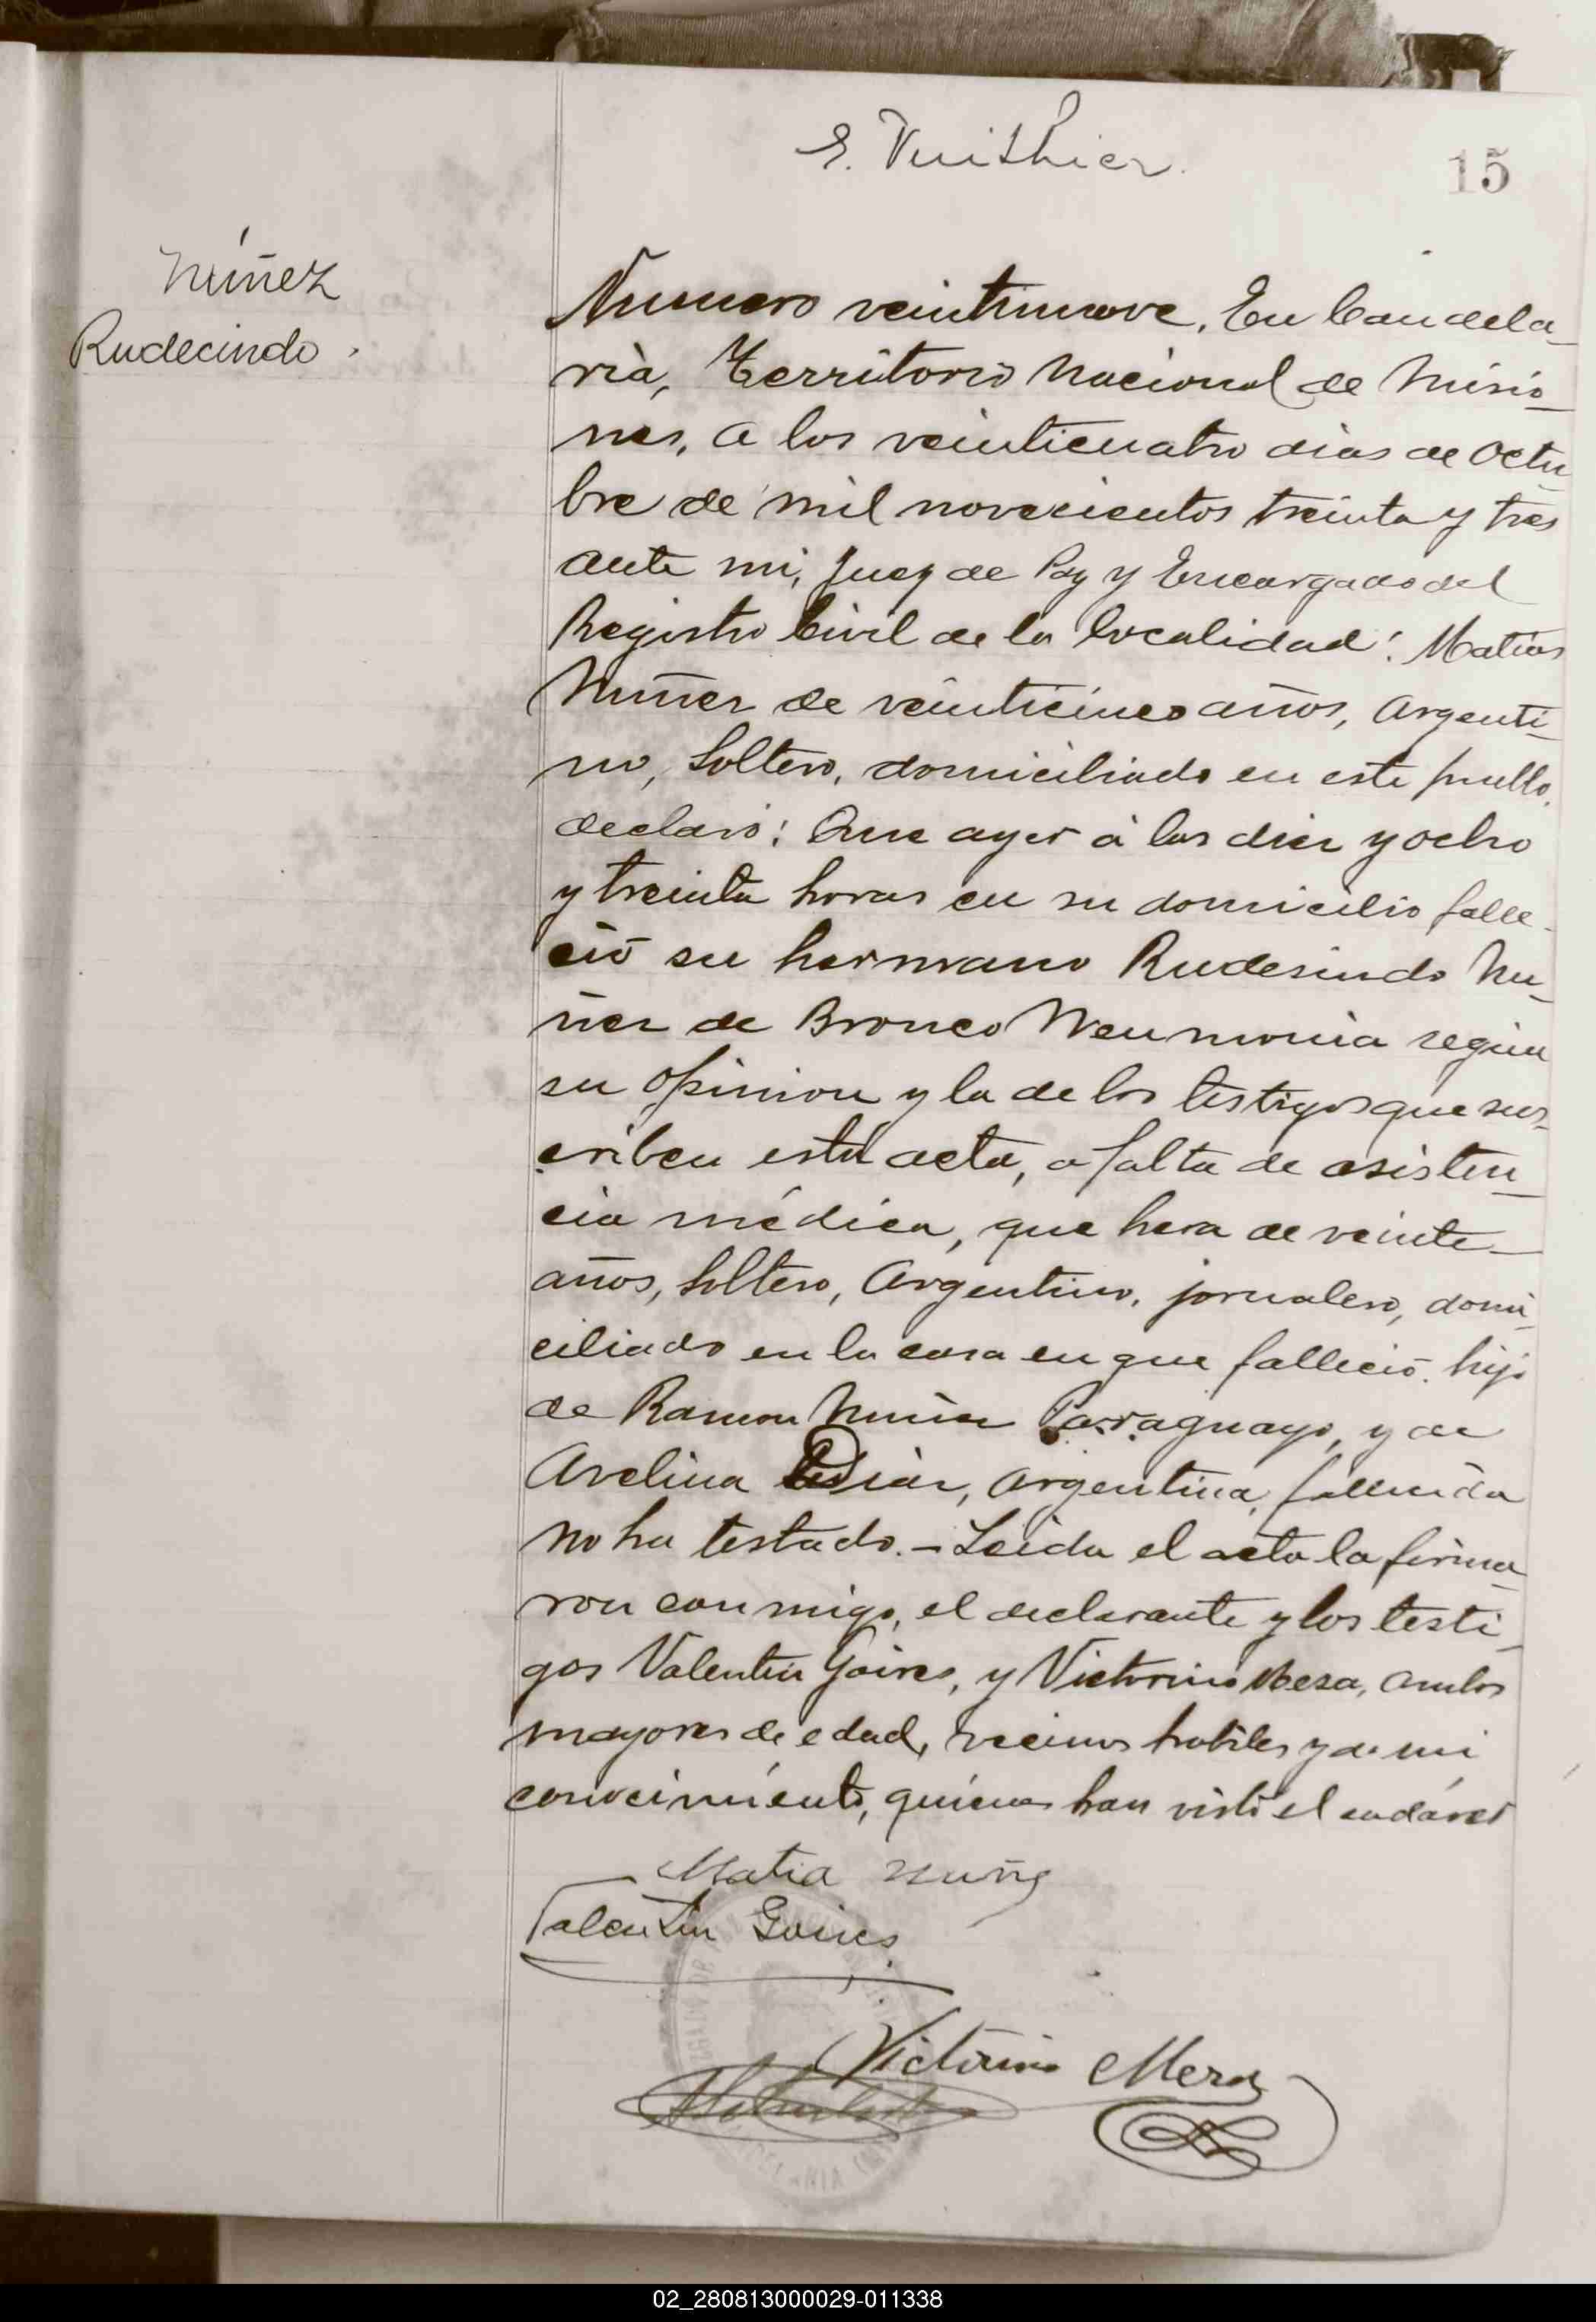 E. Vuithier
15
Núñez
Rudecindo.
Numero veintinueve. En Candela-
ria, Territorio Nacional de Misio-
nes, a los veinticuatro dias de Octu-
bre de mil novecientos treinta y tres
ante mi, Juez de Paz y Encargado del
Registro Civil de la localidad: Matias
Nuñez de veinticinco años, Argenti-
no, Soltero, domiciliado en este pueblo,
declaró: Que ayer á las diez y ocho
y treinta horas en su domicilio falle-
ció su hermano Rudesindo Nu-
ñez de Bronco Neumonia según
su opinion y la de los testigos que sus-
criben esta acta, a falta de asisten-
cia médica, que hera de veinte
años, Soltero, Argentino, jornalero, domi-
ciliado en la casa en que falleció. hijo
de Ramon Nuñez Paraguayo, y de
Avelina Diaz, Argentina, fallecida
no ha testado. - Leida el acta la firma-
ron conmigo, el declarante y los testi-
gos Valentin Goires, y Victorino Meza, ambos
mayores de edad, vecinos habiles y de mi
conocimiento, quienes han visto el cadáver
Matia Nuñez
Valentin Goires
Victorino Meza
02_280813000029-011338